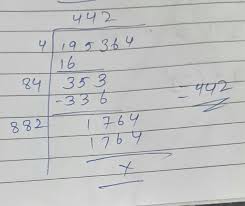 442
4 195364
16
84 353
-336 = 442
882 1764
1764
x